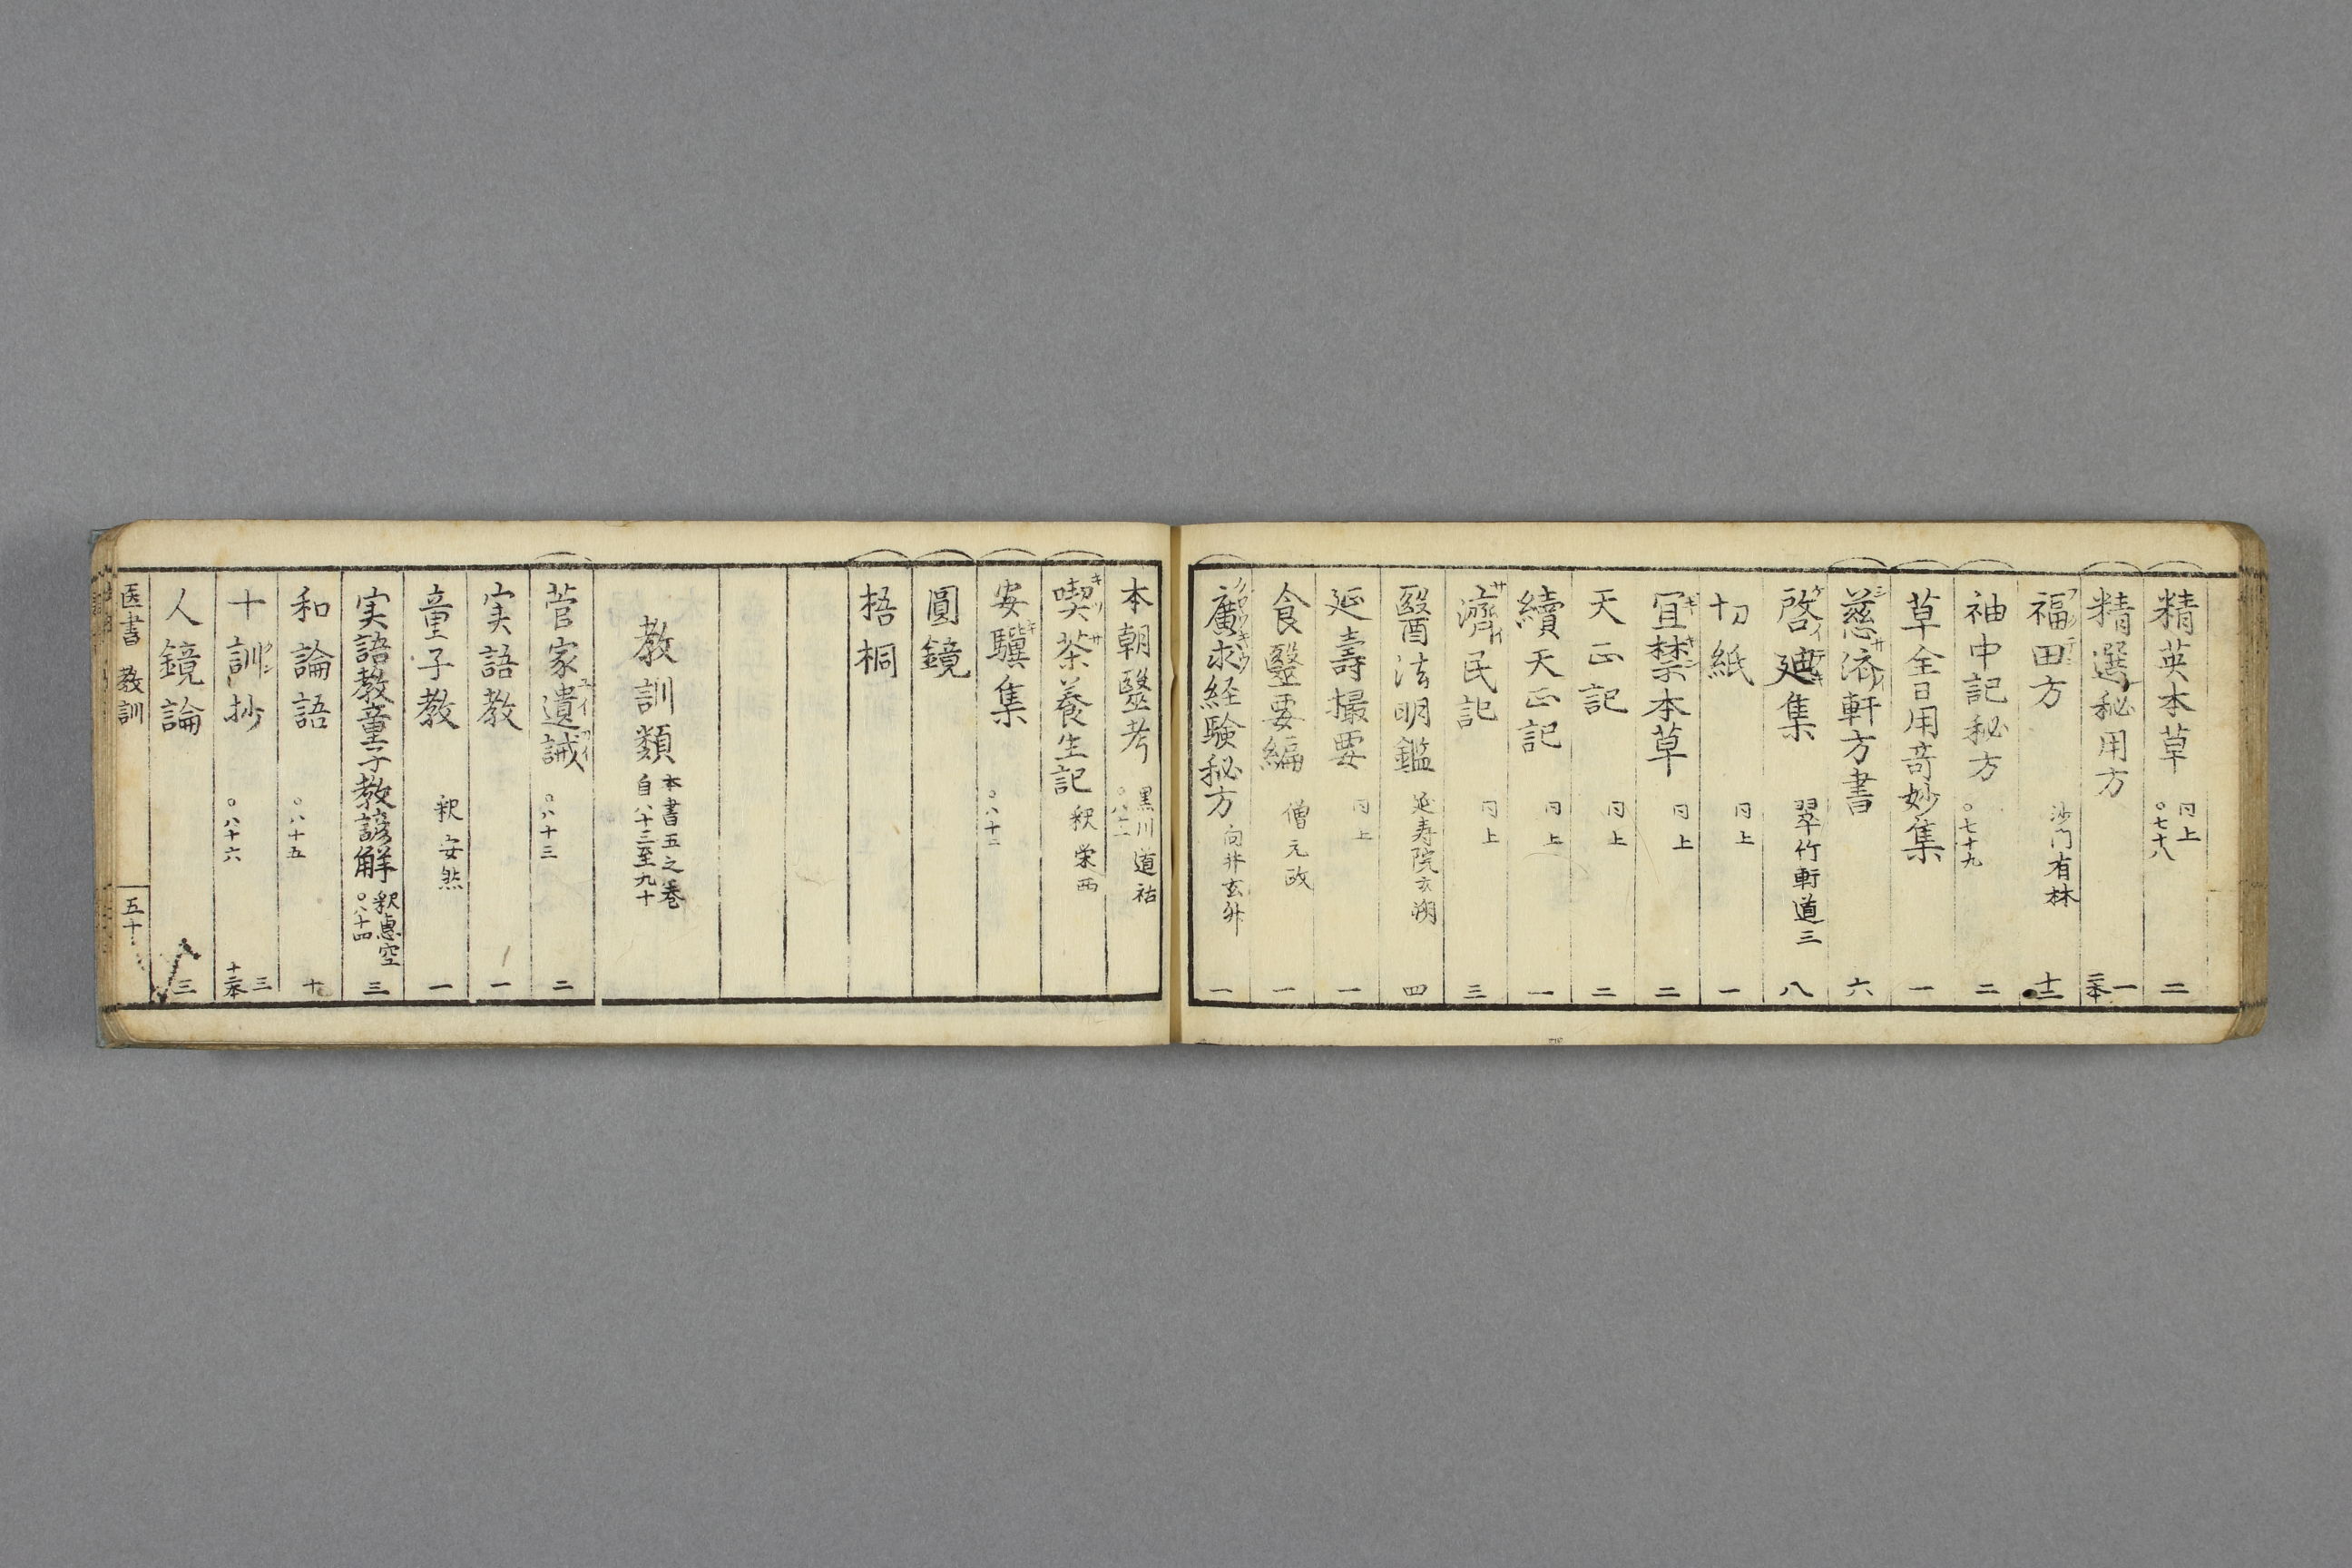 精英本草 同上 〇七十八 二
精選秘用方 一 二本
福田方 沙門有林 十二
袖中記秘方 〇七十九 二
草全日用竒妙集 一
慈済軒方書 六
啓迪集 翠竹軒道三 八
切紙 同上 一
宜禁本草 同上 二
天正記 同上 二
續天正記 同上 一
濟民記 同上 三
醫法明鑑 延寿院玄朔 四
延壽撮要 同上 一
食毉要編 僧元政 一
廣求経験秘方 向井玄升 一
本朝毉考 黒川道祐
喫茶養生記 釈栄西
安驥集 〇八十二
圓鏡
梧桐
教訓類 本書五之巻 自八十三至九十
菅家遺誡 〇八十三 二
実語教 一
童子教 釈安然 一
実語教童子教諺解 釈惠空 〇八十四 三
和論語 〇八十五 十
十訓抄 〇八十六 三
人鏡論 三
医書 教訓 五十